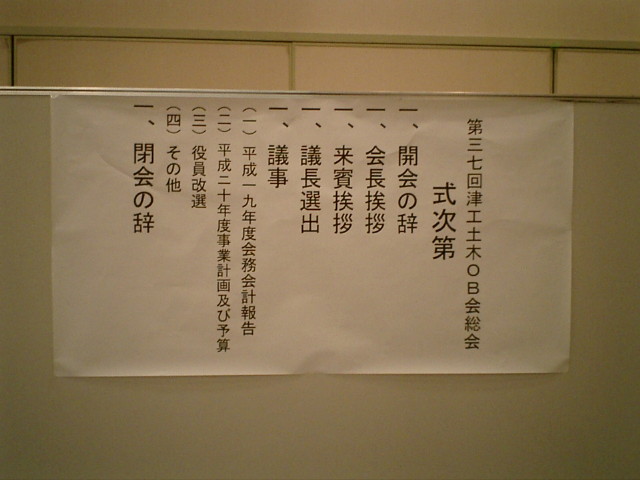 第三七回津工土木OB会総会
式次第
一、開会の辞
一、会長挨拶
一、来賓挨拶
一、議長選出
一、議事
(一)平成一九年度会務会計報告
(二)平成二十年度事業計画及び予算
(三)役員改選
(四)その他
一、閉会の辞